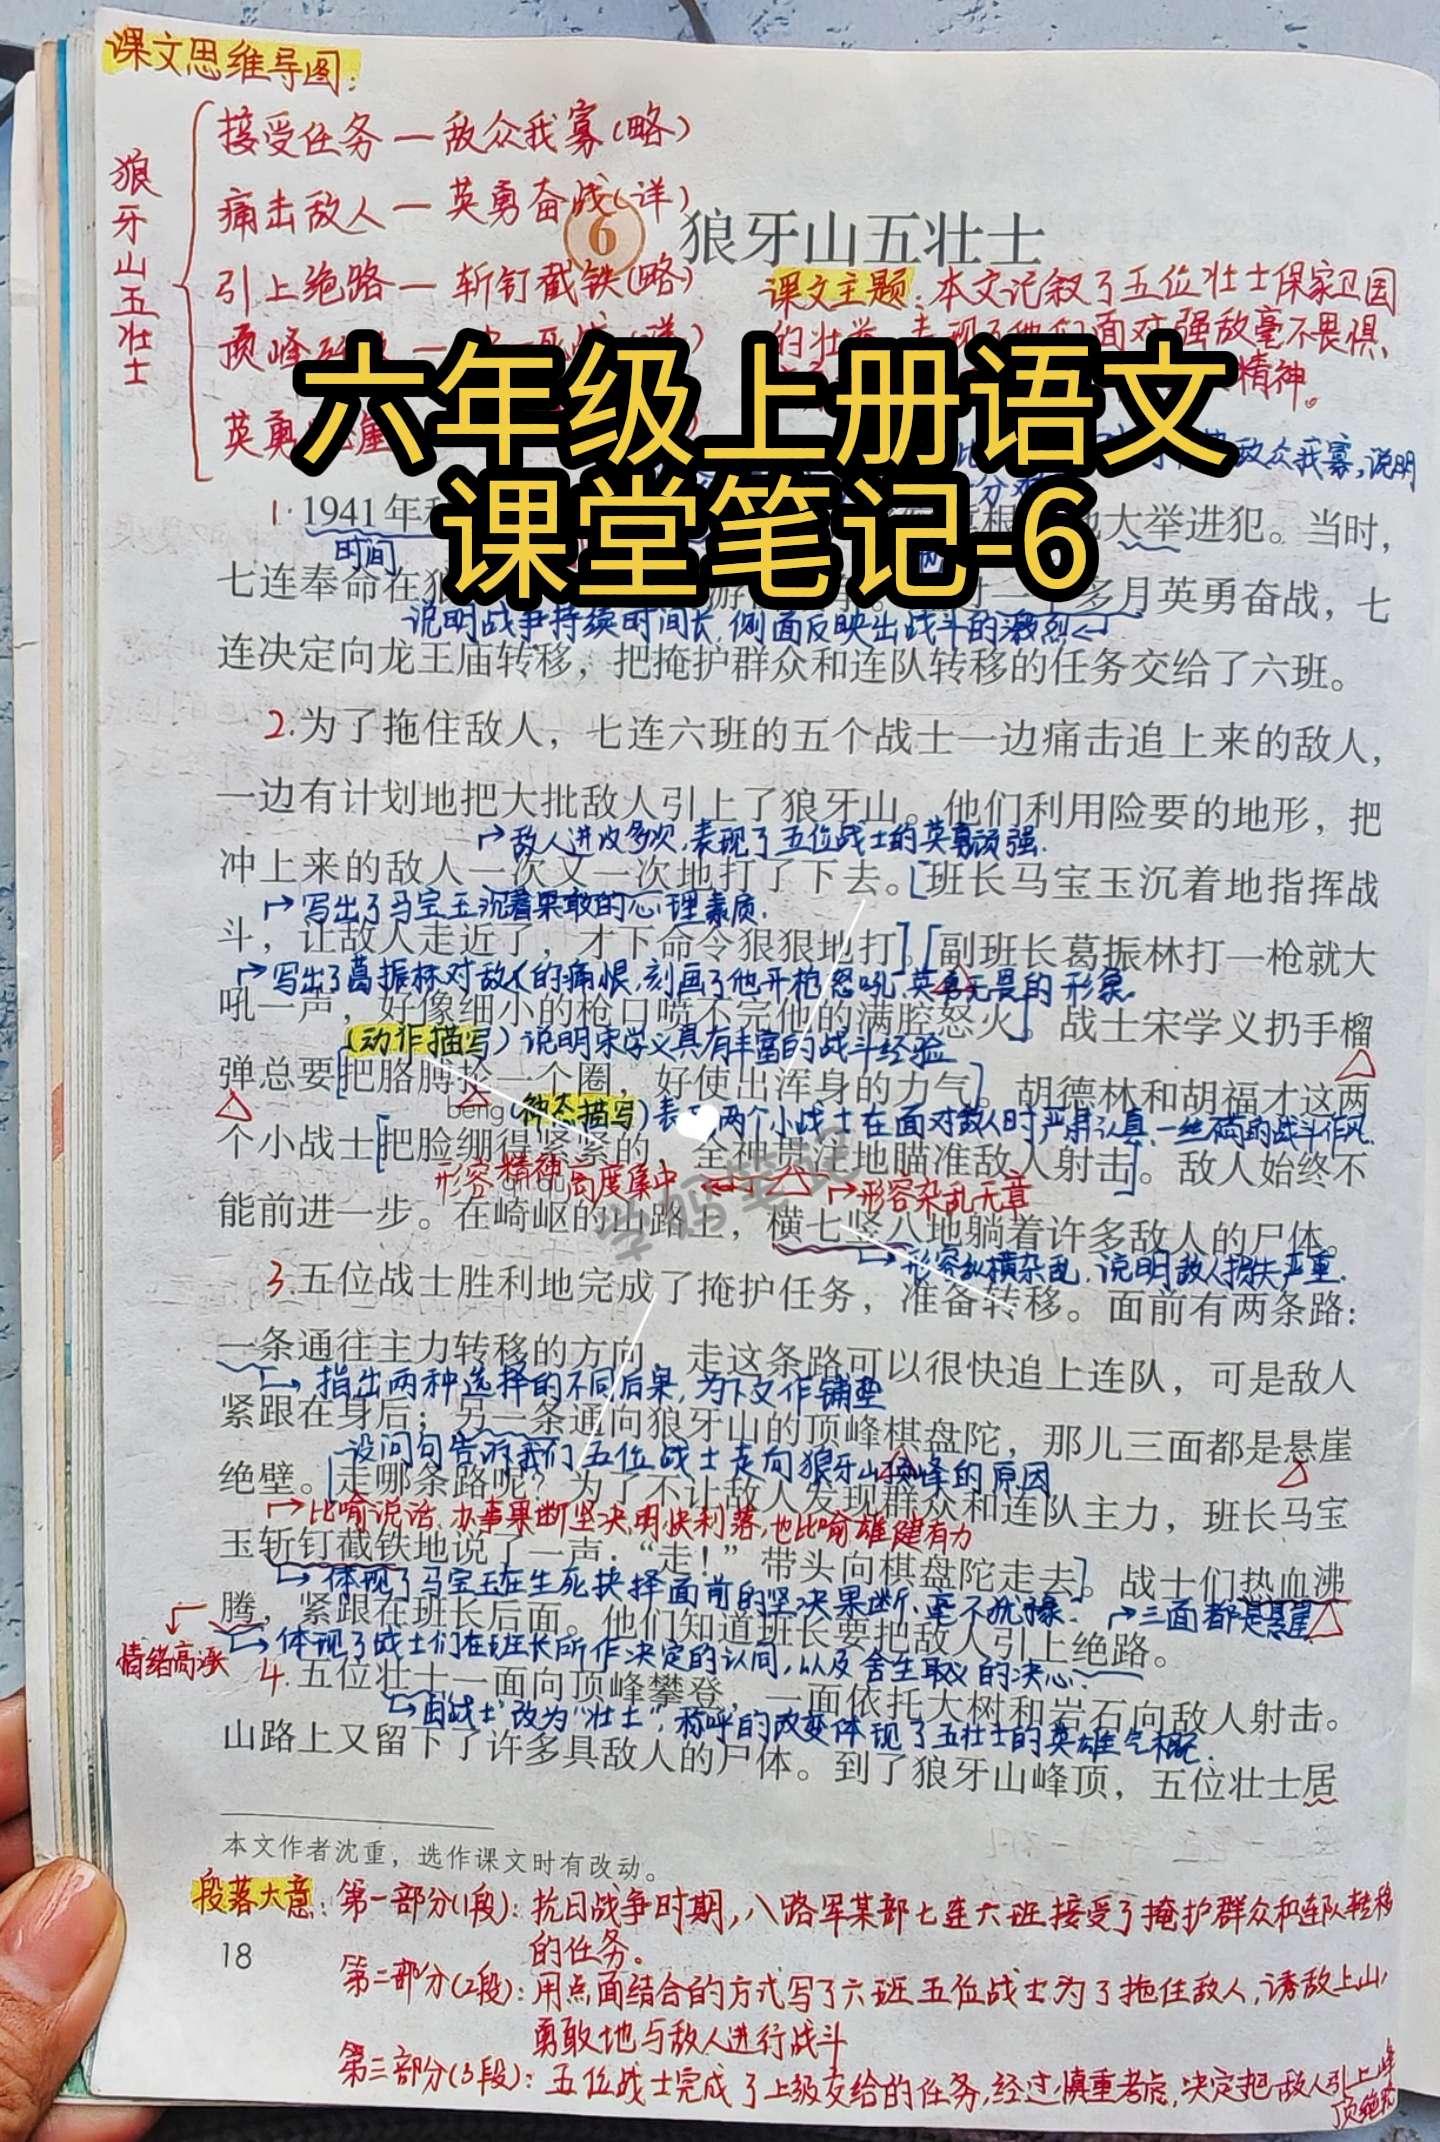 课文思维导图：
狼牙山五壮士
接受任务—敌众我寡(略)
痛击敌人—英勇奋战(详)
引上绝路—斩钉截铁(略)
顶峰
英勇
6 狼牙山五壮士
课文主题：本文记叙了五位壮士保家卫国
的壮举,表现了他们面对强敌毫不畏惧、
精神。
六年级上册语文
课堂笔记-6
敌众我寡,说明
1.1941年
大举进犯。当时，
时间
七连奉命在
多月英勇奋战，七
说明战争持续时间长,侧面反映出战斗的激烈
连决定向龙王庙转移，把掩护群众和连队转移的任务交给了六班。
2.为了拖住敌人，七连六班的五个战士一边痛击追上来的敌人，
一边有计划地把大批敌人引上了狼牙山。他们利用险要的地形，把
敌人进攻多次,表现了五位战士的英勇顽强.
冲上来的敌人一次又一次地打了下去。[班长马宝玉沉着地指挥战
写出了马宝玉沉着果敢的心理素质.
斗，让敌人走近了，才下命令狠狠地打]。[副班长葛振林打一枪就大
写出了葛振林对敌人的痛恨,刻画了他开枪怒吼、英勇无畏的形象.
吼一声，好像细小的枪口喷不完他的满腔怒火]。战士宋学义扔手榴
(动作描写)说明宋学义具有丰富的战斗经验
弹总要[把胳膊抡一个圈，好使出浑身的力气]。胡德林和胡福才这两
bēng (神态描写)表现两个小战士在面对敌人时严肃认真、一丝不苟的战斗作风.
个小战士[把脸绷得紧紧的，全神贯注地瞄准敌人射击]。敌人始终不
形容精神高度集中
形容杂乱无章
能前进一步。在崎岖的山路上，横七竖八地躺着许多敌人的尸体。
形容纵横杂乱,说明敌人损失严重.
3.五位战士胜利地完成了掩护任务，准备转移。面前有两条路：
一条通往主力转移的方向，走这条路可以很快追上连队，可是敌人
指出两种选择的不同后果,为下文作铺垫
紧跟在身后；另一条通向狼牙山的顶峰棋盘陀，那儿三面都是悬崖
设问句告诉我们五位战士走向狼牙山顶峰的原因
绝壁。[走哪条路呢？为了不让敌人发现群众和连队主力，班长马宝
比喻说话、办事果断坚决,明快利落,也比喻雄健有力
玉斩钉截铁地说了一声：“走！”带头向棋盘陀走去]。战士们热血沸
体现了马宝玉在生死抉择面前的坚决果断、毫不犹豫.
三面都是悬崖
腾，紧跟在班长后面。他们知道班长要把敌人引上绝路。
情绪高涨
体现了战士们在班长所作决定的认同,以及舍生取义的决心.
4.五位壮士一面向顶峰攀登，一面依托大树和岩石向敌人射击。
由“战士”改为“壮士”,称呼的改变体现了五壮士的英雄气概.
山路上又留下了许多具敌人的尸体。到了狼牙山峰顶，五位壮士居
学妈笔记
本文作者沈重，选作课文时有改动。
段落大意：第一部分(1段)：抗日战争时期,八路军某部七连六班接受了掩护群众和连队转移
的任务。
18
第二部分(2段)：用点面结合的方式写了六班五位战士为了拖住敌人,诱敌上山,
勇敢地与敌人进行战斗
第三部分(3段)：五位战士完成了上级交给的任务,经过慎重考虑,决定把敌人引上峰
顶绝路